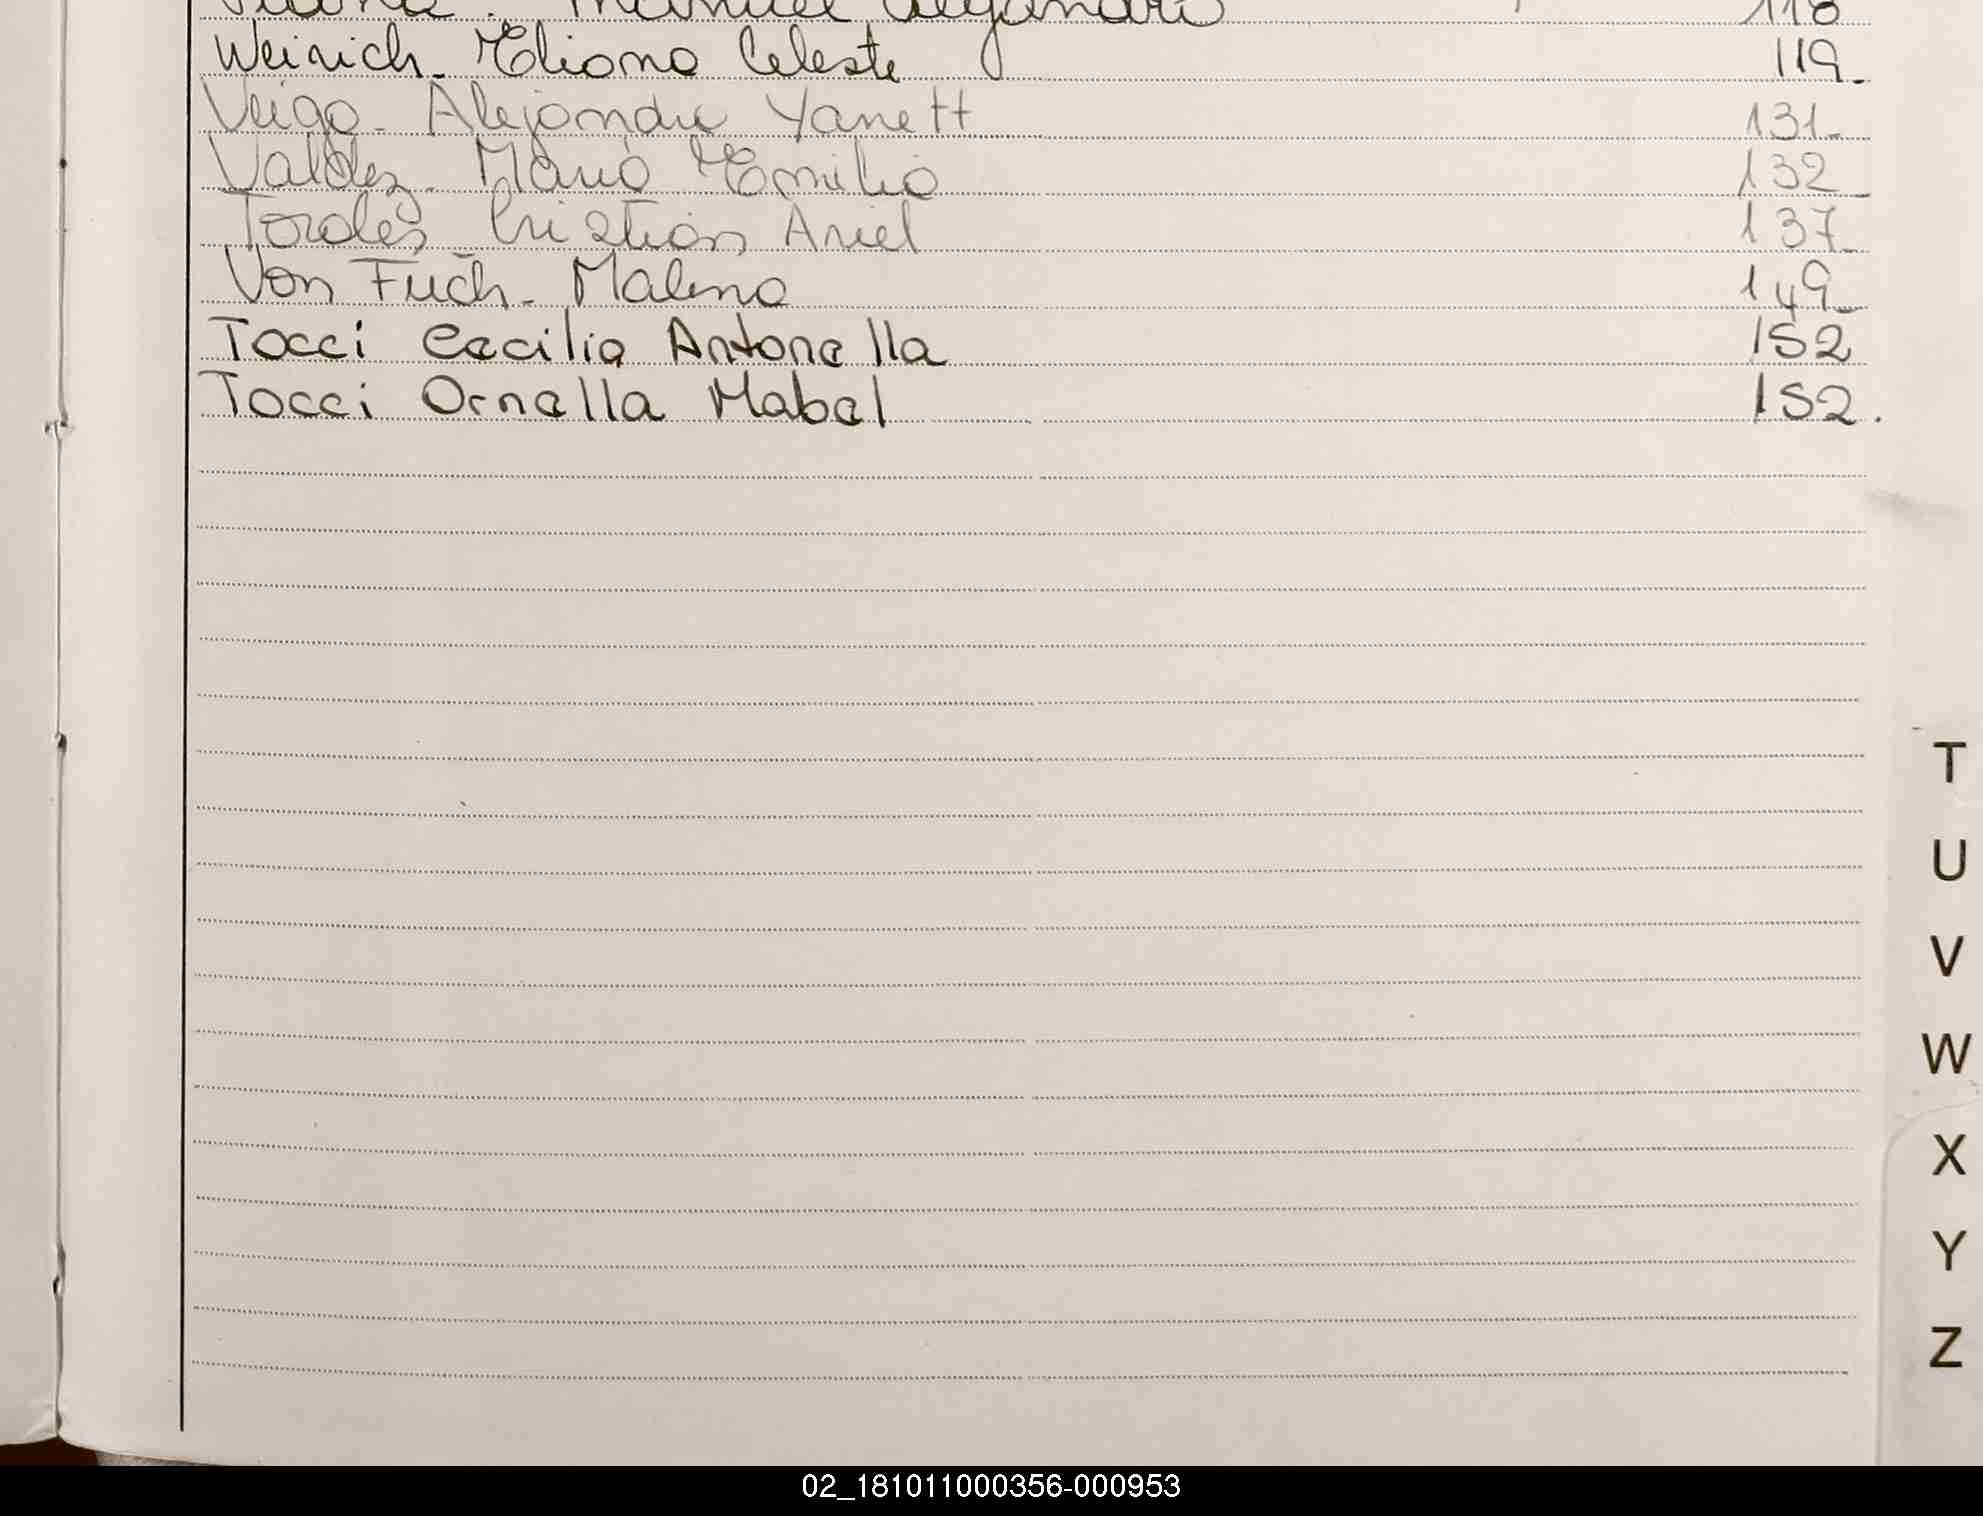 Manuel Alejandro 118
Weirich. Eliana Celeste 119.
Veiga. Alejandra Yanett 131.
Valdez. Maria Emilia 132
Toroles Cristian Ariel 137
Von Fuch. Malena 149
Tocci Cecilia Antonella 152
Tocci Ornella Mabel 152.
T
U
V
W
X
Y
Z
02_181011000356-000953